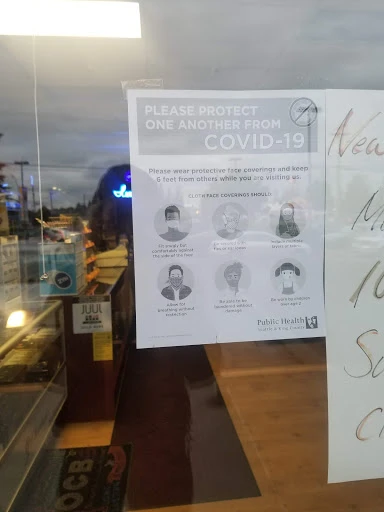 PLEASE PROTECT
ONE ANOTHER FROM
COVID-19
Please wear protective face coverings and keep
6 feet from others while you are visiting us.
CLOTH FACE COVERINGS SHOULD:
Fit snugly but
comfortably against
the side of the face
Include multiple
layers of fabric
Allow for
breathing without
restriction
Be able to be
laundered without
damage
Be worn by children
over age 2
Public Health
Seattle & King County
New
10
JUUL
OCB